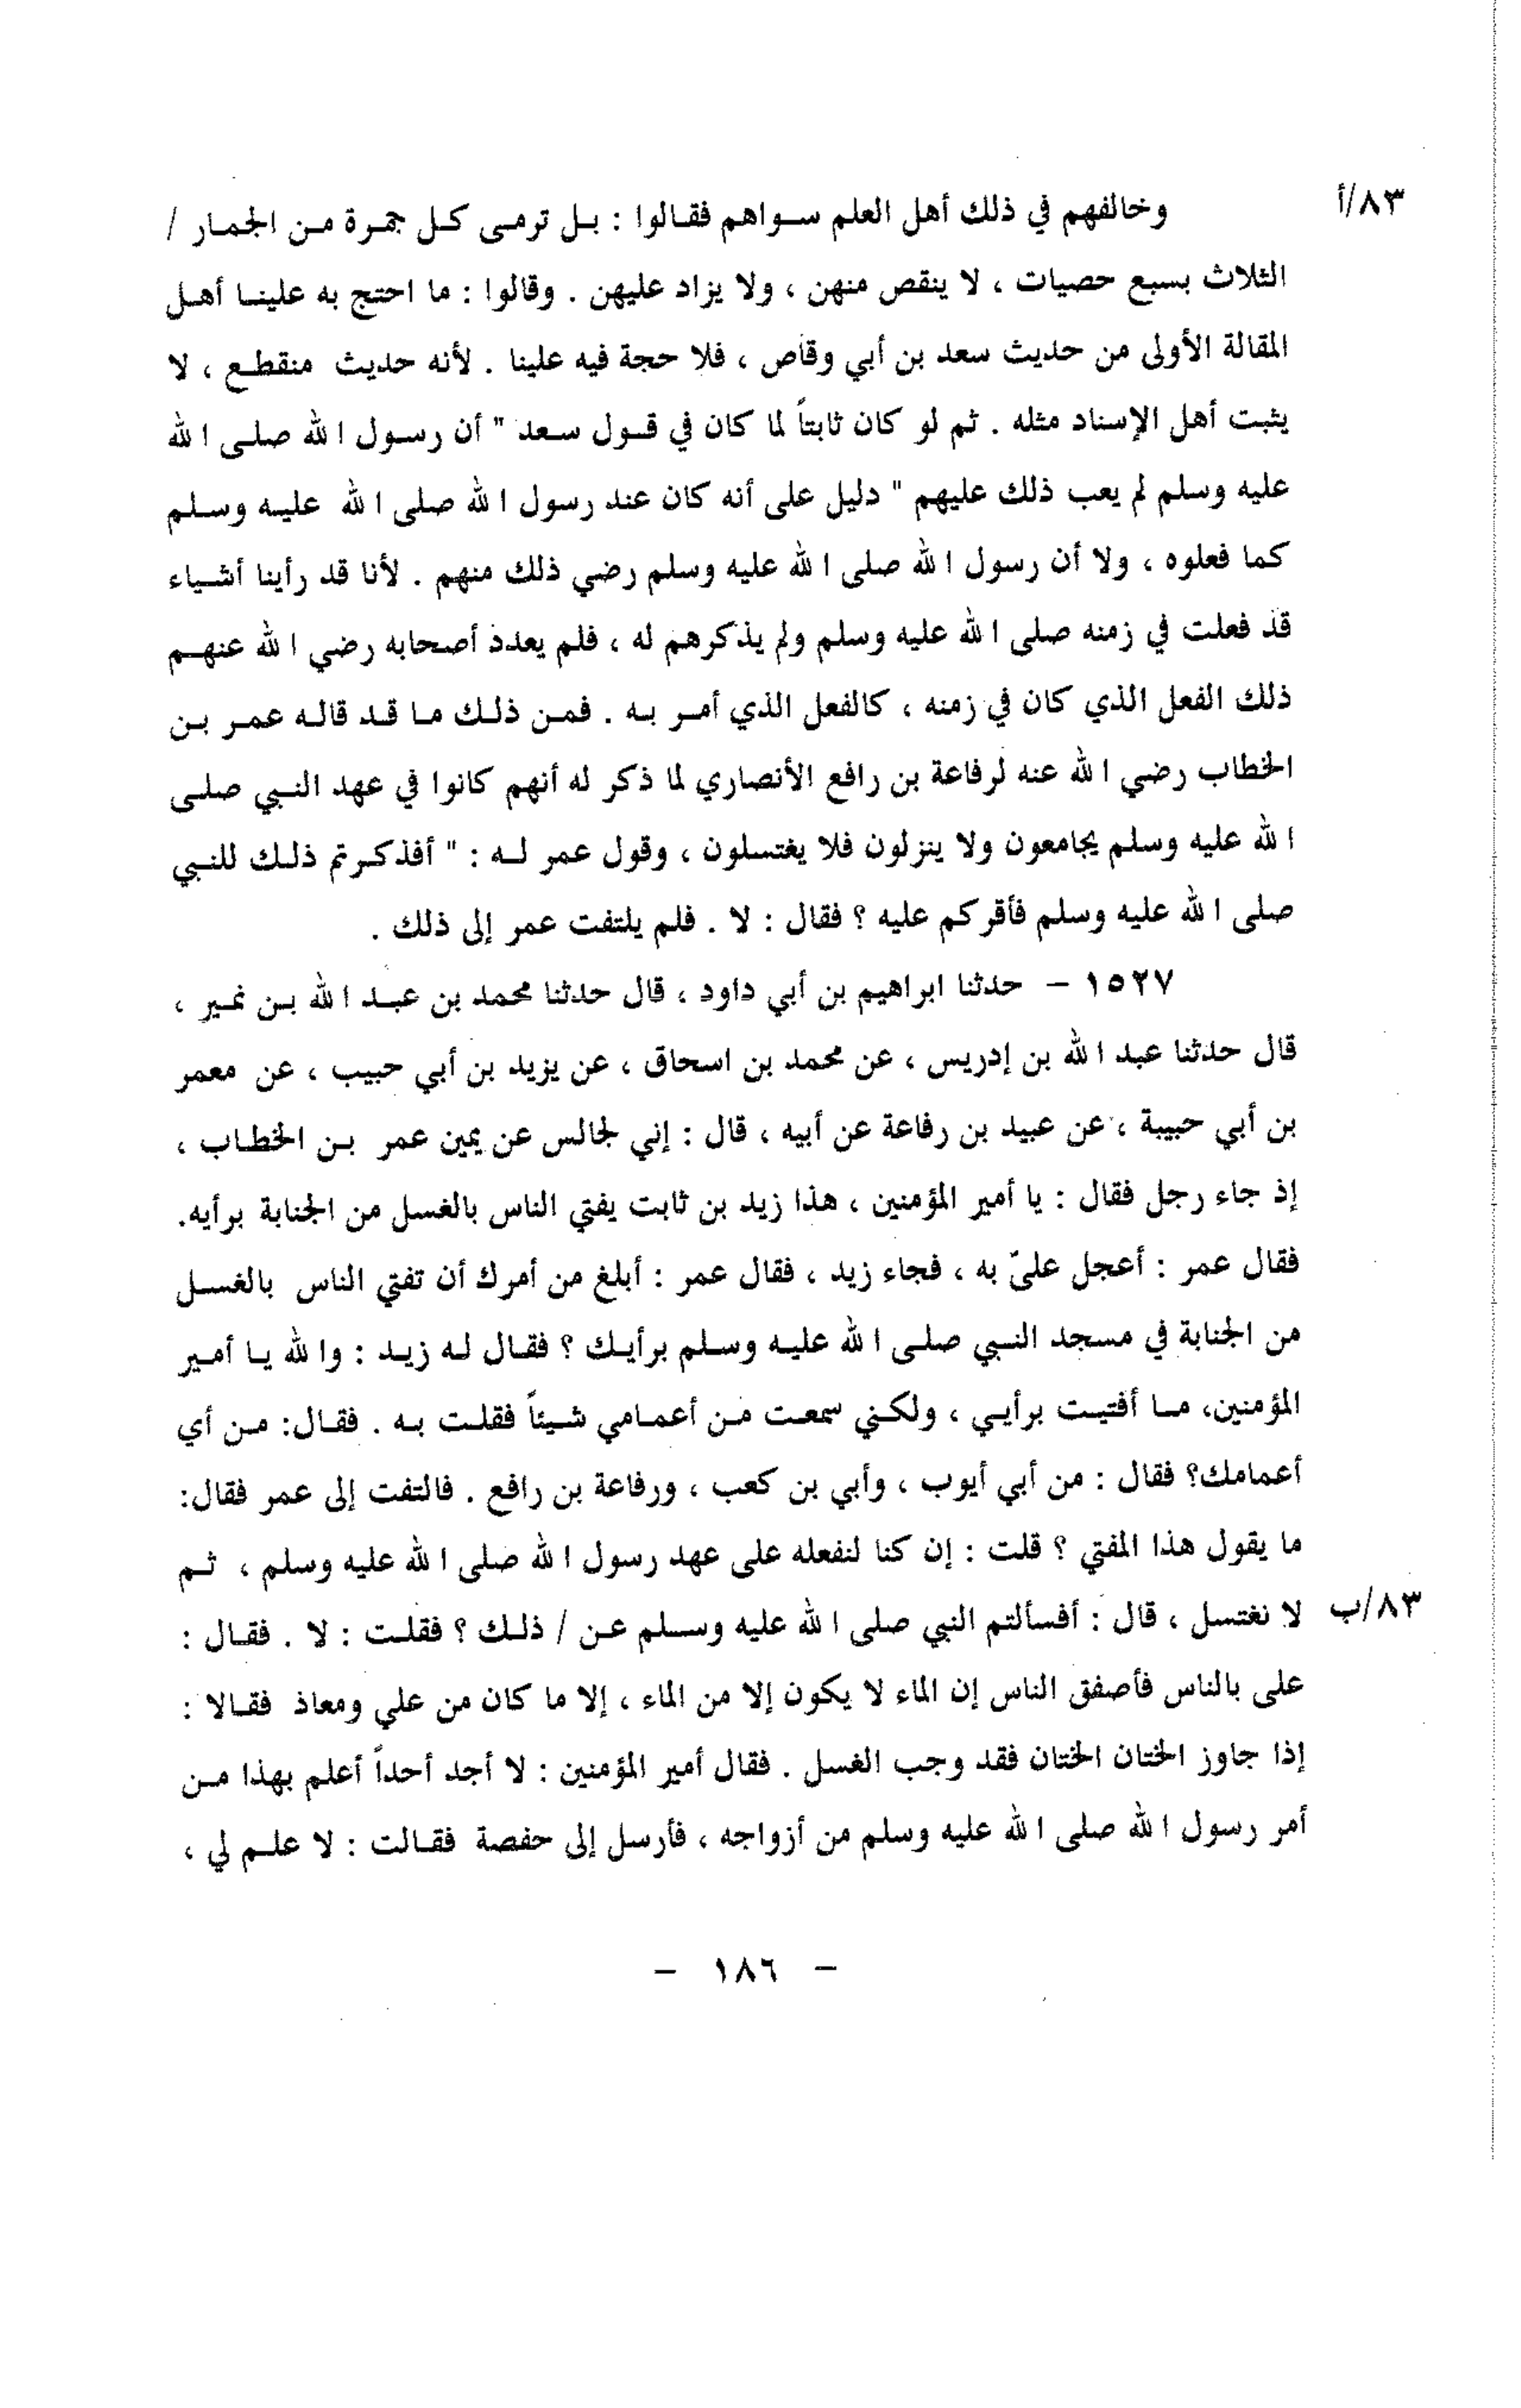 ٨٣/أ وخالفهم في ذلك أهل العلم سواهم فقالوا : بل ترمى كل جمرة من الجمار /
الثلاث بسبع حصيات ، لا ينقص منهن ، ولا يزاد عليهن . وقالوا : ما احتج به علينا أهل
المقالة الأولى من حديث سعد بن أبي وقاص ، فلا حجة فيه علينا . لأنه حديث منقطع ، لا
يثبت أهل الإسناد مثله . ثم لو كان ثابتاً لما كان في قول سعد " أن رسول الله صلى الله
عليه وسلم لم يعب ذلك عليهم " دليل على أنه كان عند رسول الله صلى الله عليه وسلم
كما فعلوه ، ولا أن رسول الله صلى الله عليه وسلم رضي ذلك منهم . لأنا قد رأينا أشياء
قد فعلت في زمنه صلى الله عليه وسلم ولم يذكرهم له ، فلم يعدد أصحابه رضي الله عنهم
ذلك الفعل الذي كان في زمنه ، كالفعل الذي أمر به . فمن ذلك ما قد قاله عمر بن
الخطاب رضي الله عنه لرفاعة بن رافع الأنصاري لما ذكر له أنهم كانوا في عهد النبي صلى
الله عليه وسلم يجامعون ولا ينزلون فلا يغتسلون ، وقول عمر له : " أفذكرتم ذلك للنبي
صلى الله عليه وسلم فأقركم عليه ؟ فقال : لا . فلم يلتفت عمر إلى ذلك .
١٥٢٧ – حدثنا ابراهيم بن أبي داود ، قال حدثنا محمد بن عبد الله بن نمير ،
قال حدثنا عبد الله بن إدريس ، عن محمد بن اسحاق ، عن يزيد بن أبي حبيب ، عن معمر
بن أبي حبيبة ، عن عبيد بن رفاعة عن أبيه ، قال : إني لجالس عن يمين عمر بن الخطاب ،
إذ جاء رجل فقال : يا أمير المؤمنين ، هذا زيد بن ثابت يفتي الناس بالغسل من الجنابة برأيه.
فقال عمر : أعجل علىّ به ، فجاء زيد ، فقال عمر : أبلغ من أمرك أن تفتي الناس بالغسل
من الجنابة في مسجد النبي صلى الله عليه وسلم برأيك ؟ فقال له زيد : والله يا أمير
المؤمنين، ما أفتيت برأيي ، ولكني سمعت من أعمامي شيئاً فقلت به . فقال: من أي
أعمامك؟ فقال : من أبي أيوب ، وأبي بن كعب ، ورفاعة بن رافع . فالتفت إلى عمر فقال:
ما يقول هذا المفتي ؟ قلت : إن كنا لنفعله على عهد رسول الله صلى الله عليه وسلم ، ثم
٨٣/ب لا نغتسل ، قال : أفسألتم النبي صلى الله عليه وسلم عن / ذلك ؟ فقلت : لا . فقال :
على بالناس فأصفق الناس إن الماء لا يكون إلا من الماء ، إلا ما كان من علي ومعاذ فقالا :
إذا جاوز الختان الختان فقد وجب الغسل . فقال أمير المؤمنين : لا أجد أحداً أعلم بهذا من
أمر رسول الله صلى الله عليه وسلم من أزواجه ، فأرسل إلى حفصة فقالت : لا علم لي ،
– ١٨٦ –